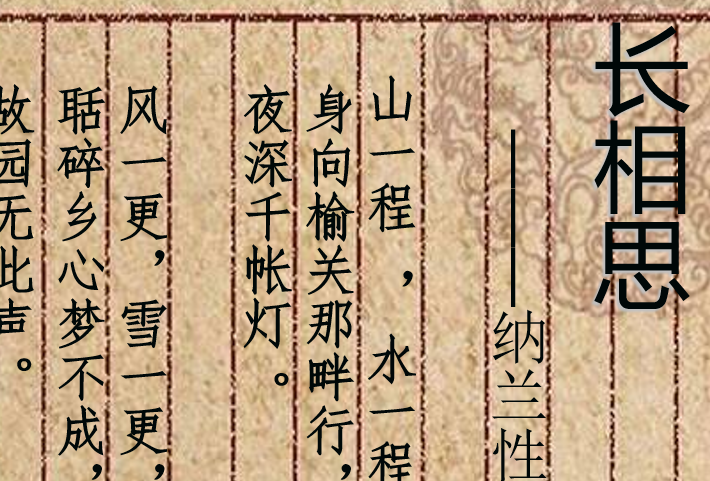 长相思
——纳兰性
山一程，水一程
身向榆关那畔行，
夜深千帐灯。
风一更，雪一更，
聒碎乡心梦不成，
故园无此声。